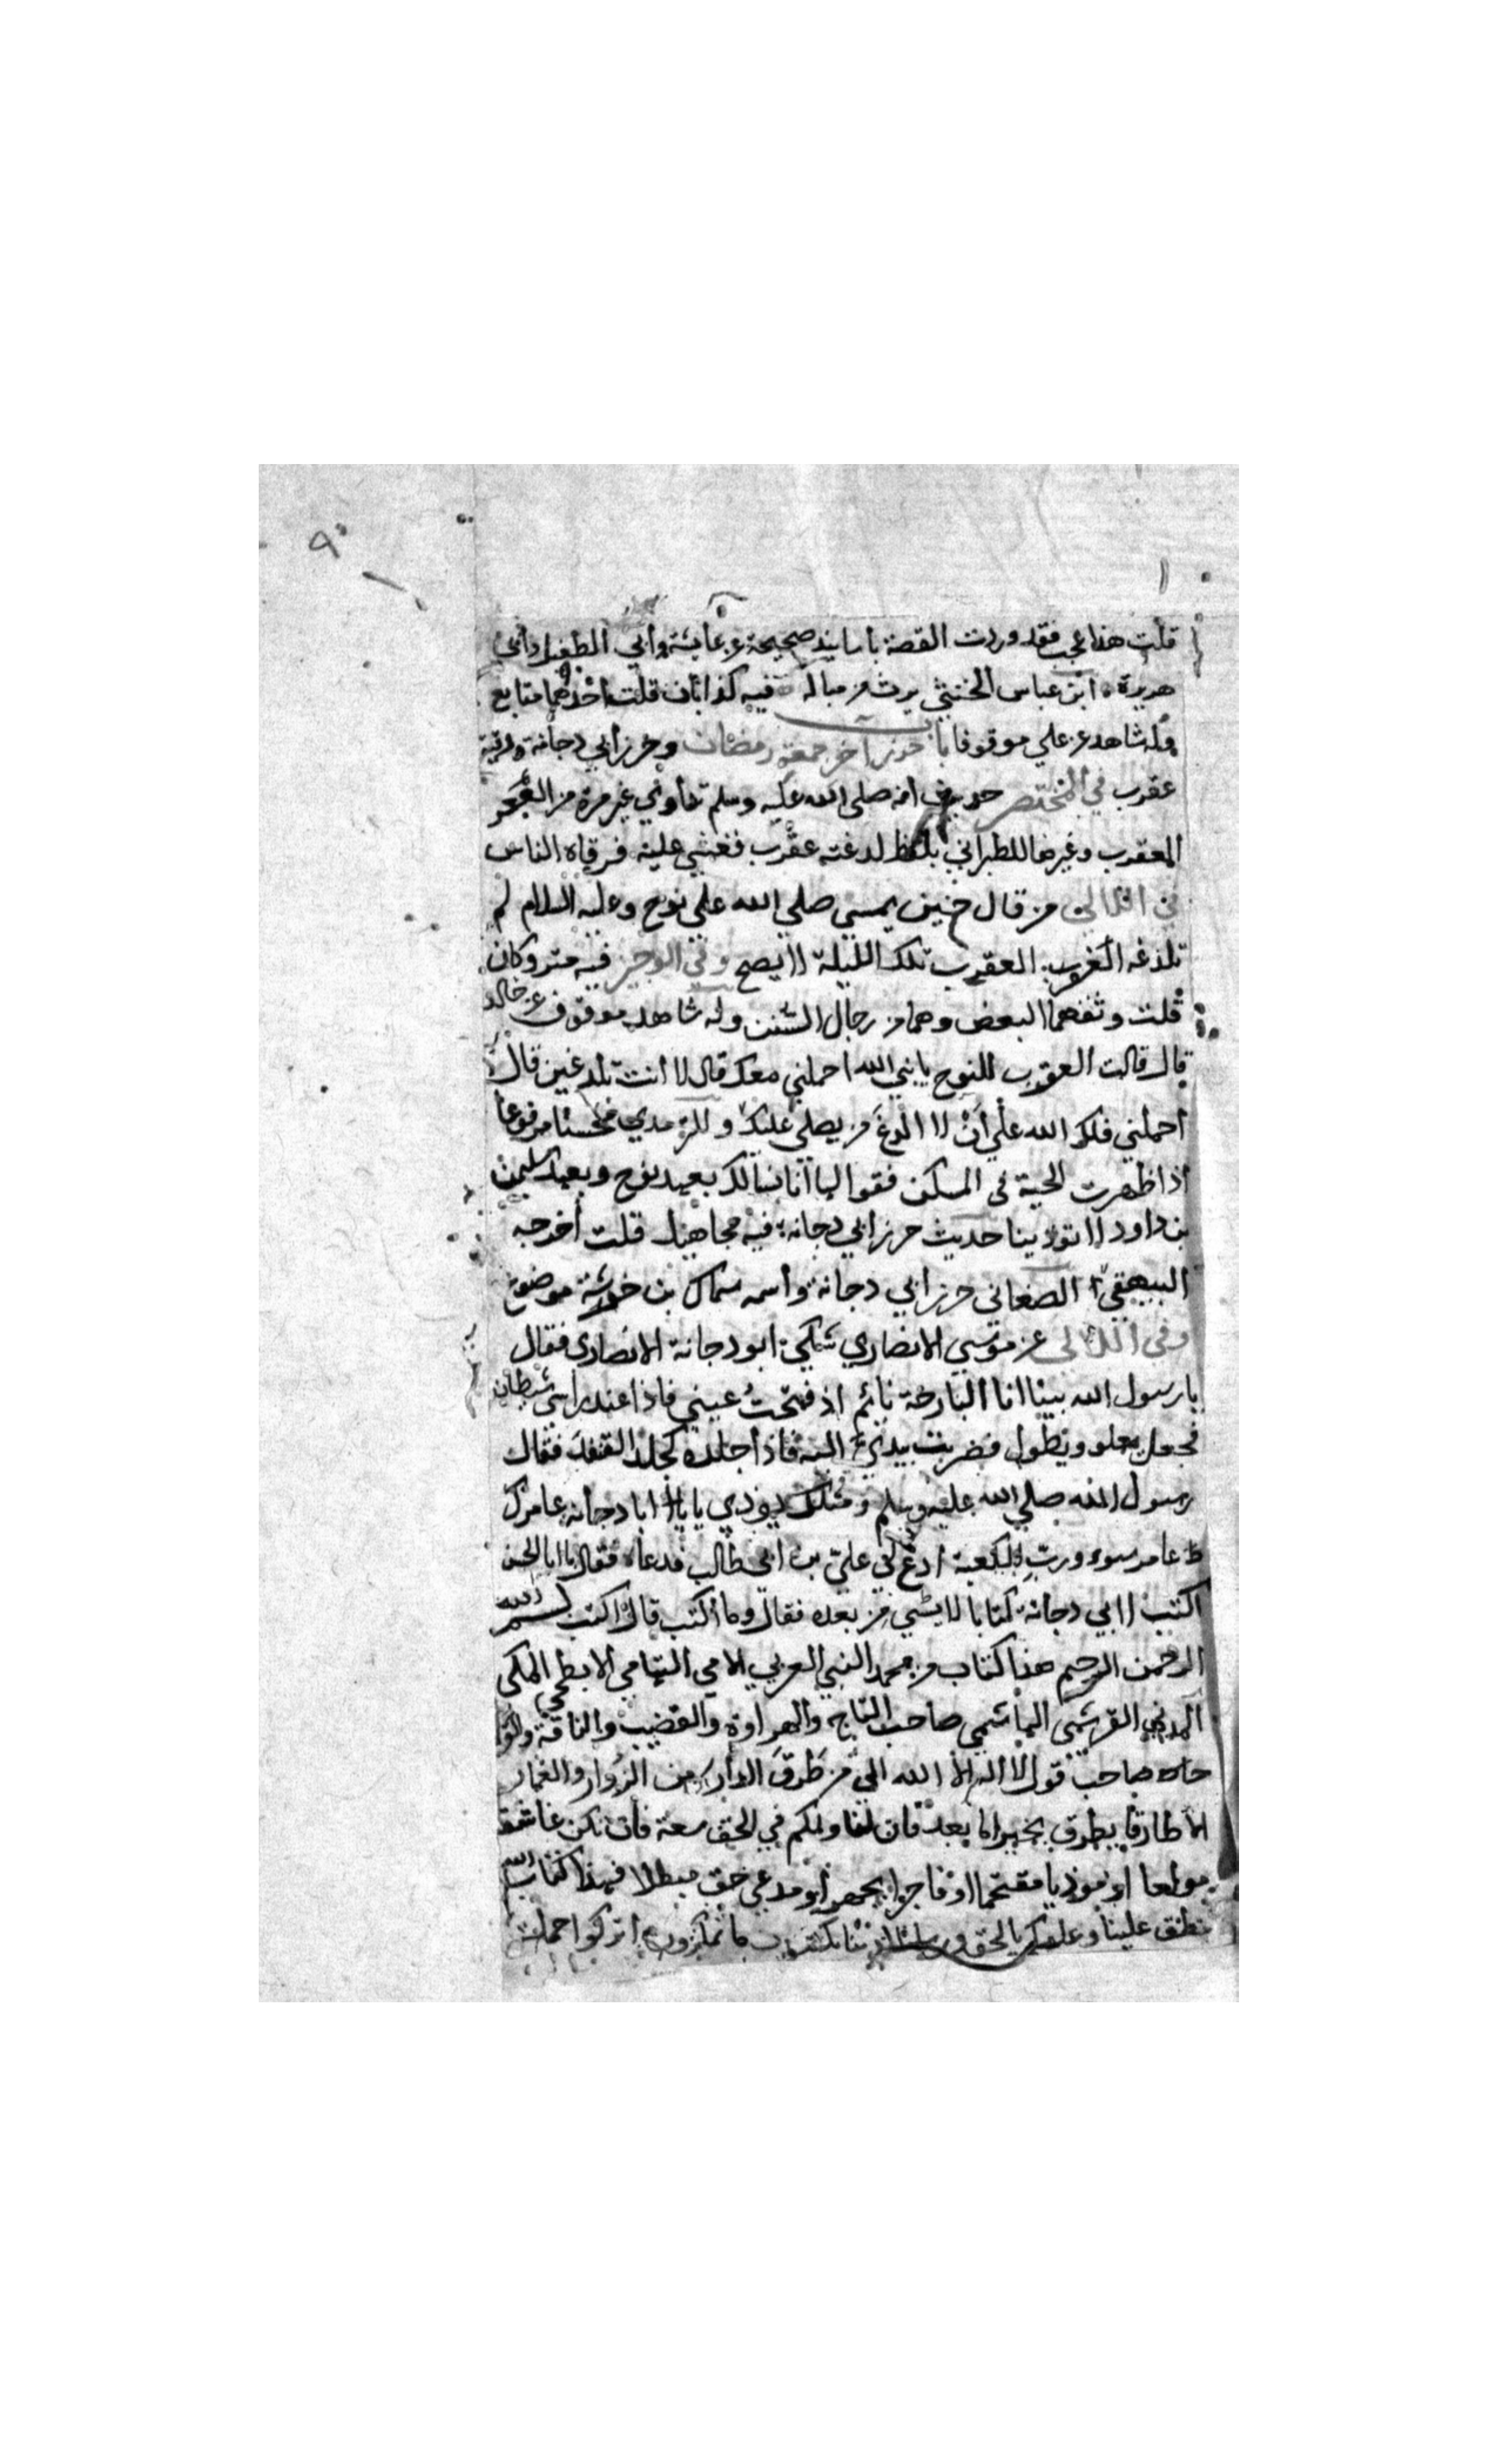 ٩
قلت هذا عجب فقد وردت القصة بأسانيد صحيحة عن عايشة وأبي الطفيل وأبي
هريرة ابن عباس الخنثى يرث من مباله فيه كذابان قلت احدهما متابع
وله شاهد عن علي موقوفا باب حرز آخر جمعة رمضان وحرز أبي دجانة ورقية
عقرب في المختصر حديث انه صلى الله عليه وسلم تداوى غير مرة من
العقرب وغيرها للطبراني بلفظ لدغته عقرب فغشي عليه فرقاه الناس
في اللالي من قال حين يمسي صلى الله على نوح وعليه السلام لم
تلدغه العقرب تلك الليلة لا يصح وفي الوجيز فيه متروكان
قلت وثقهما البعض وهما من رجال السنن وله شاهد موقوف عن خالد
قال قالت العقرب للنوح يا نبي الله احملني معك قال لا أنت تلدغين قال
أحملني فلك الله علي أن لا الدغ من يصلي عليك وللترمذي محسنا مرفوعا
اذا ظهرت الحية في المسكن فقولوا لها انا نسألك بعهد نوح وبعهد سليمن
بن داود لا تؤذينا حديث حرز ابي دجانة فيه مجاهيل قلت أخرجه
البيهقي الصغاني حرز ابي دجانة وأسمه سماك بن خرشة موضوع
وفي اللالي عن موسى الانصاري شكى ابو دجانة الانصاري فقال
يا رسول الله بينا انا البارحة نائم اذ فتحت عيني فاذا عند راسي شيطان
فجعل يعلو ويطول فضربت بيدي اليه فاذا جلده كجلد القنفذ فقال
رسول الله صلى الله عليه وسلم ومثلك يؤذي يا ابا دجانة عامرك
عامر سوء ورب الكعبة ادع لي علي بن ابي طالب فدعاه فقال يا ابا الحسن
اكتب لابي دجانة كتابا لا شيء من بعده فقال وما أكتب قال اكتب بسم الله
الرحمن الرحيم هذا كتاب من محمد النبي العربي الامي التهامي الابطحي المكي
المدني القرشي الهاشمي صاحب التاج والهراوة والقضيب والناقة
صاحب قول لا اله الا الله الى من طرق الدار من الزوار والعمار
الا طارقا يطرق بخير اما بعد فان لنا ولكم في الحق سعة فان تكن عاشقا
مولعا او موذيا مقتحما او فاجرا يجهر أو مدعي حق مبطلا فهذا كتاب الله
ينطق علينا وعليكم بالحق ورسلنا يكتبون ما تمكرون اتركوا حملة